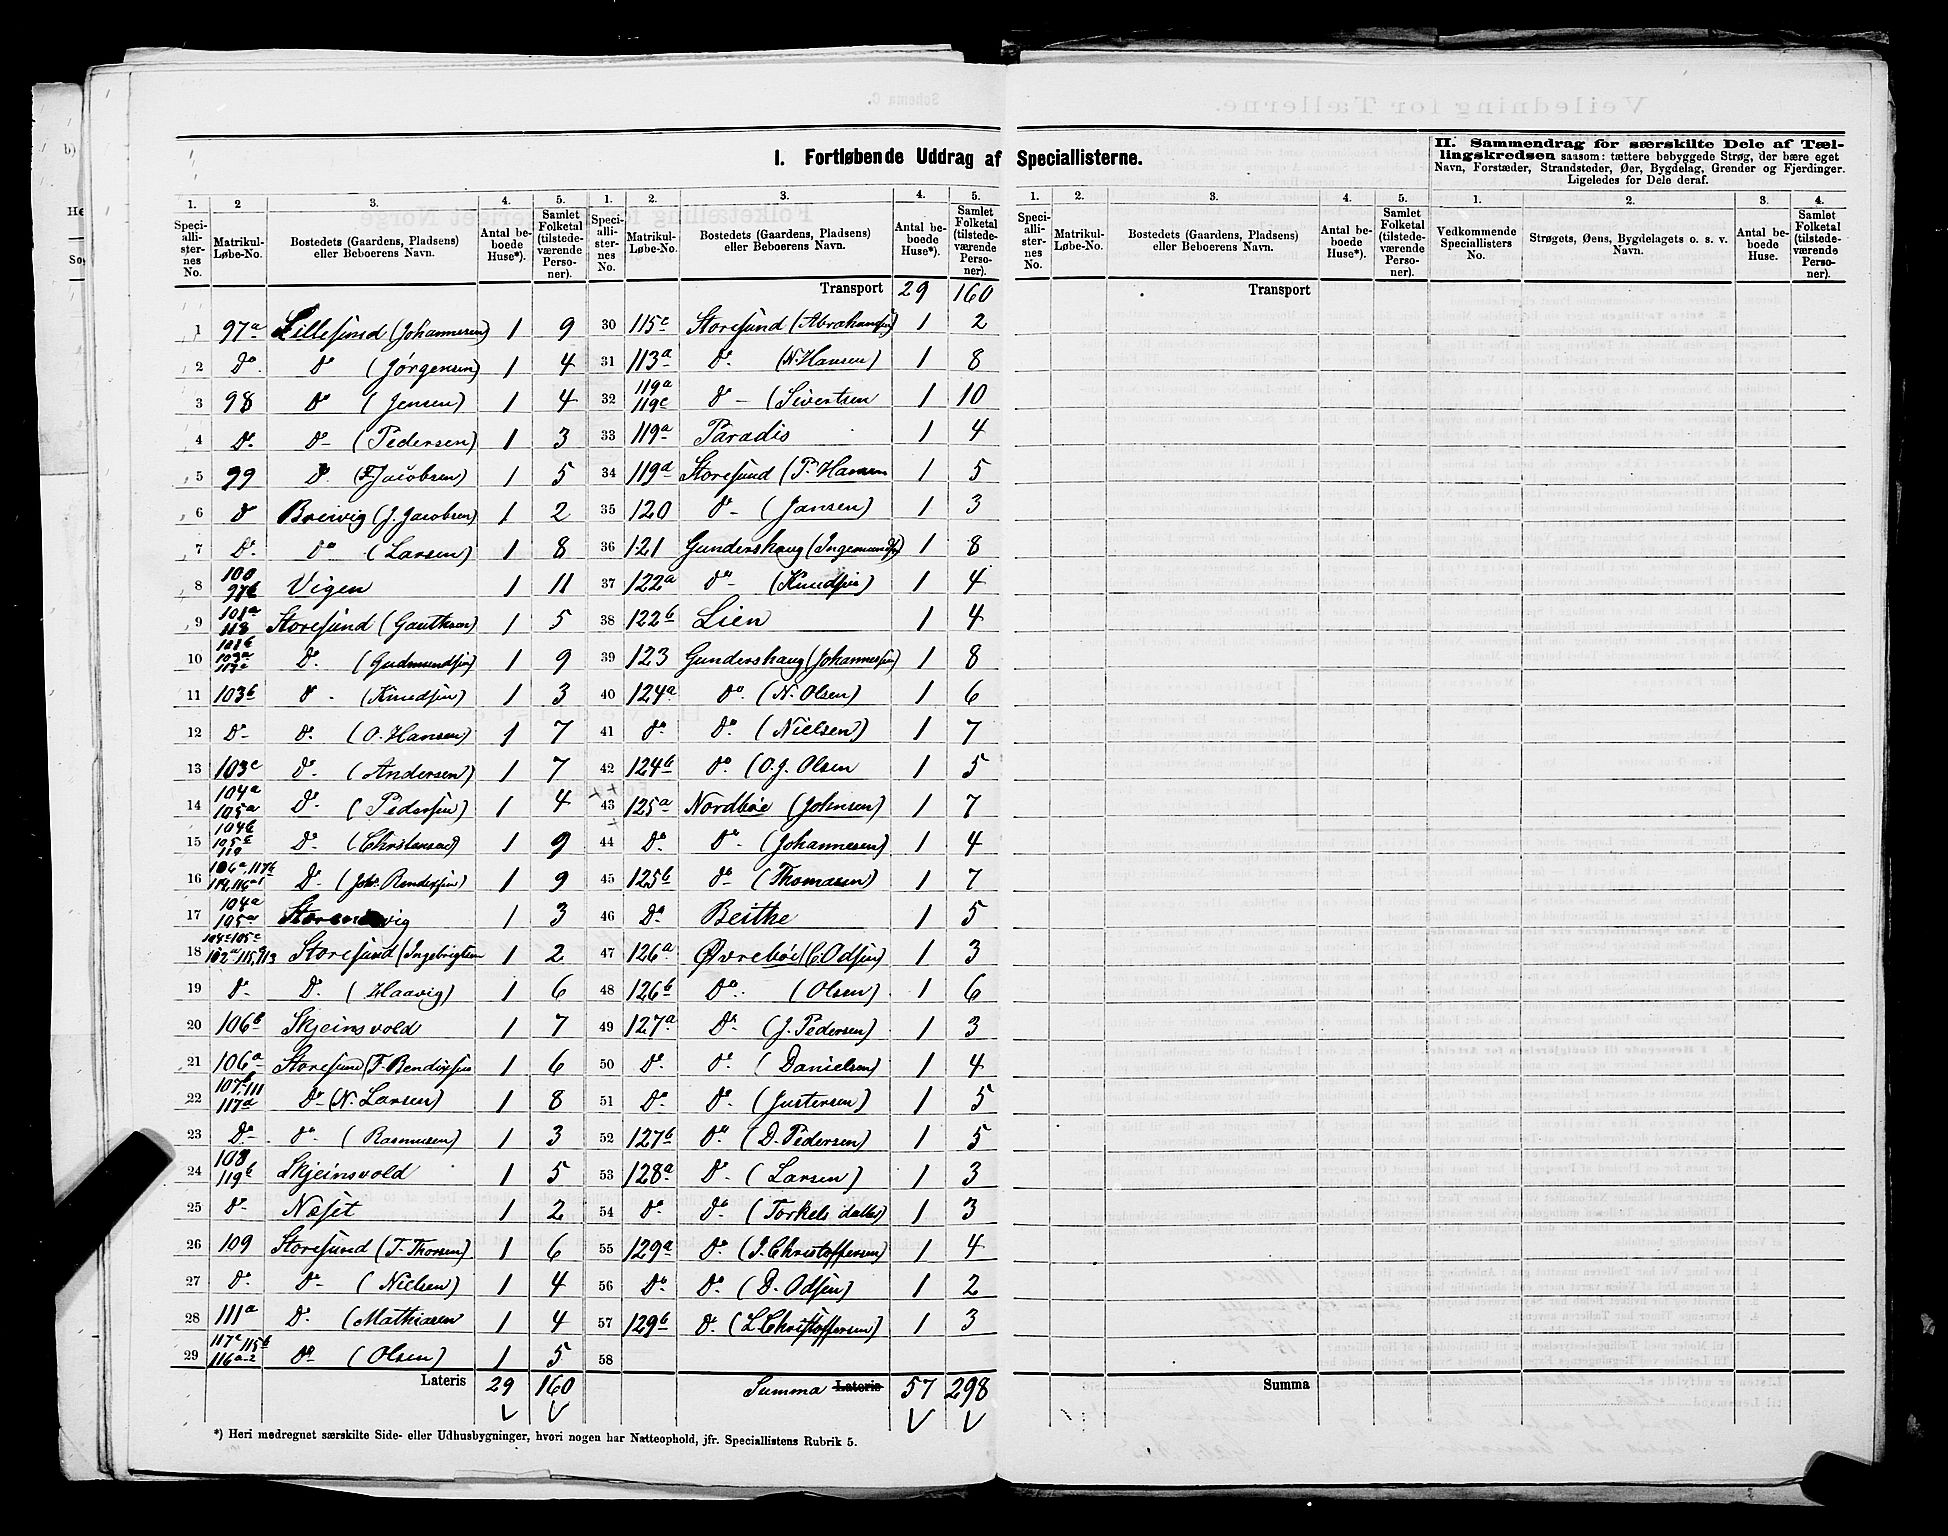 I. Fortløbende Uddrag af Speciallisterne.
1. 2 3. 4. 5.
Speciallisternes No. Matrikul-Løbe-No. Bostedets (Gaardens, Pladsens) eller Beboerens Navn. Antal beboede Huse*). Samlet Folketal (tilstedeværende Personer).
1 97a Lillesund (Johannesen) 1 9
2 Do. Do (Jørgensen) 1 4
3 98 Do (Jensen) 1 4
4 Do. Do- (Pedersen) 1 3
5 99 Do. (F. Jacobsen) 1 5
6 Do Breivig (J. Jacobsen) 1 2
7 Do. Do (Larsen) 1 8
8 100 97b Vigen 1 11
9 101a 118 Storesund (Gauthsen) 1 5
10 101b 103a 117c Do. (Gudmundsen) 1 9
11 103b Do - (Knudsen) 1 3
12 Do- Do. (O. Hansen) 1 7
13 103c Do. (Andersen) 1 7
14 104a 105a Do. (Pedersen) 1 4
15 104b 105b 110 Do. (Christensen) 1 9
16 106a, 117b Do- (Joh. Bendixsen) 1 9
17 104a 105a 1 3
18 104c 105c Storesund (Ingebrigtsen 1 2
19 Do- Do. (Haavig) 1 6
20 106b Skjeinsvold 1 7
21 106a Storesund (T. Bendixsen 1 6
22 107, 111 117d Do- (N. Larsen) 1 8
23 Do- Do. (Rasmusen) 1 3
24 108 119b Skjeinsvold 1 5
25 Do- Næset 1 2
26 109 Storesund (T. Thorsen) 1 6
27 Do. Do- (Nielsen) 1 4
28 111a Do. (Mathiasen 1 4
29 117a 115b 116a-2 Do- (Olsen) 1 5
Lateris 29 160
1. 2. 3. 4. 5.
Speciallisternes No. Matrikul-Løbe-No. Bostedets (Gaardens, Pladsens) eller Beboerens Navn. Antal beboede Huse*). Samlet Folketal (tilstedeværende Personer).
Transport 29 160
30 115c Storesund (Abrahamsen) 1 2
31 113a Do. (N. Hansen) 1 8
32 119a 119c Do - (Sivertsen 1 10
33 119a Paradis 1 4
34 119d Storesund (P. Hansen 1 5
35 120 Do- (Jansen) 1 3
36 121 Gundershaug (Ingemundsen) 1 8
37 122a Do- (Knudsen) 1 4
38 122b Lien 1 4
39 123 Gundershaug (Johannessen) 1 8
40 124a Do. (N. Olsen) 1 6
41 Do. Do. (Nielsen) 1 7
42 124b Do. (O. J. Olsen 1 5
43 125a Nordbøe (Johnsen) 1 7
44 Do. Do- (Johannesen) 1 4
45 125b Do- (Thomasen) 1 7
46 Do Beithe 1 5
47 126a Øvrebøe (C. Odsen) 1 3
48 126b Do. (Olsen) 1 6
49 127a Do- (J. Pedersen) 1 3
50 Do. Do. (Danielsen) 1 4
51 Do- Do- (Justersen) 1 5
52 127b Do- (D. Pedersen) 1 5
53 128a Do- (Larsen) 1 3
54 Do. Do. (Torkelsdatter) 1 3
55 129a Do. (J. Christoffersen) 1 4
56 Do. Do. (D. Odsen) 1 2
57 129b Do. (L. Christoffersen) 1 3
58
Summa Lateris 57 298
*) Heri medregnet særskilte Side- eller Udhusbygninger, hvori nogen har Natteophold, jfr. Speciallistens Rubrik 5.
1. 2. 3. 4. 5.
Speciallisternes No. Matrikul-Løbe-No. Bostedets (Gaardens, Pladsens) eller Beboerens Navn. Antal beboede Huse*). Samlet Folketal (tilstedeværende Personer).
Transport
Summa
II. Sammendrag for særskilte Dele af Tællingskredsen saasom: tættere bebyggede Strøg, der bære eget Navn, Forstæder, Strandsteder, Øer, Bygdelag, Grender og Fjerdinger. Ligeledes for Dele deraf.
1. 2. 3. 4.
Vedkommende Speciallisters No. Strøgets, Øens, Bygdelagets o. s. v. Navn. Antal beboede Huse. Samlet Folketal (tilstedeværende Personer).